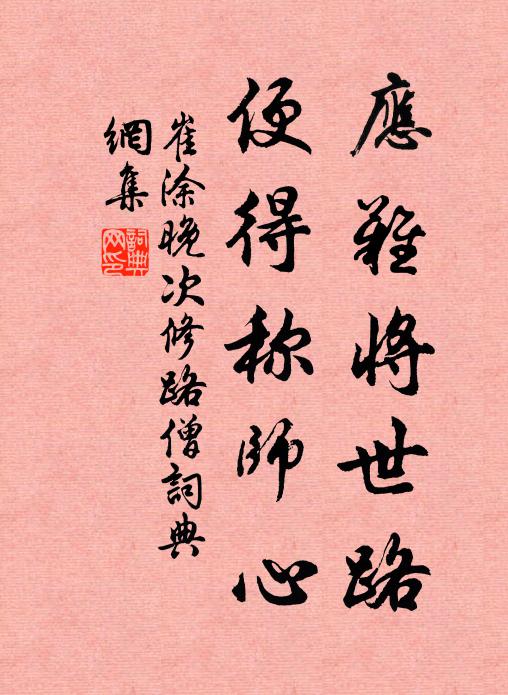 應難將世路
便得称師心
崔涂晚次修路僧詞典
網集
詞典
网印